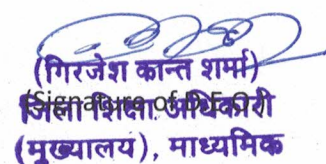 (गिरजेश कान्त शर्मा)
(Signature of D.E.O.)
जिला शिक्षा अधिकारी
(मुख्यालय), माध्यमिक